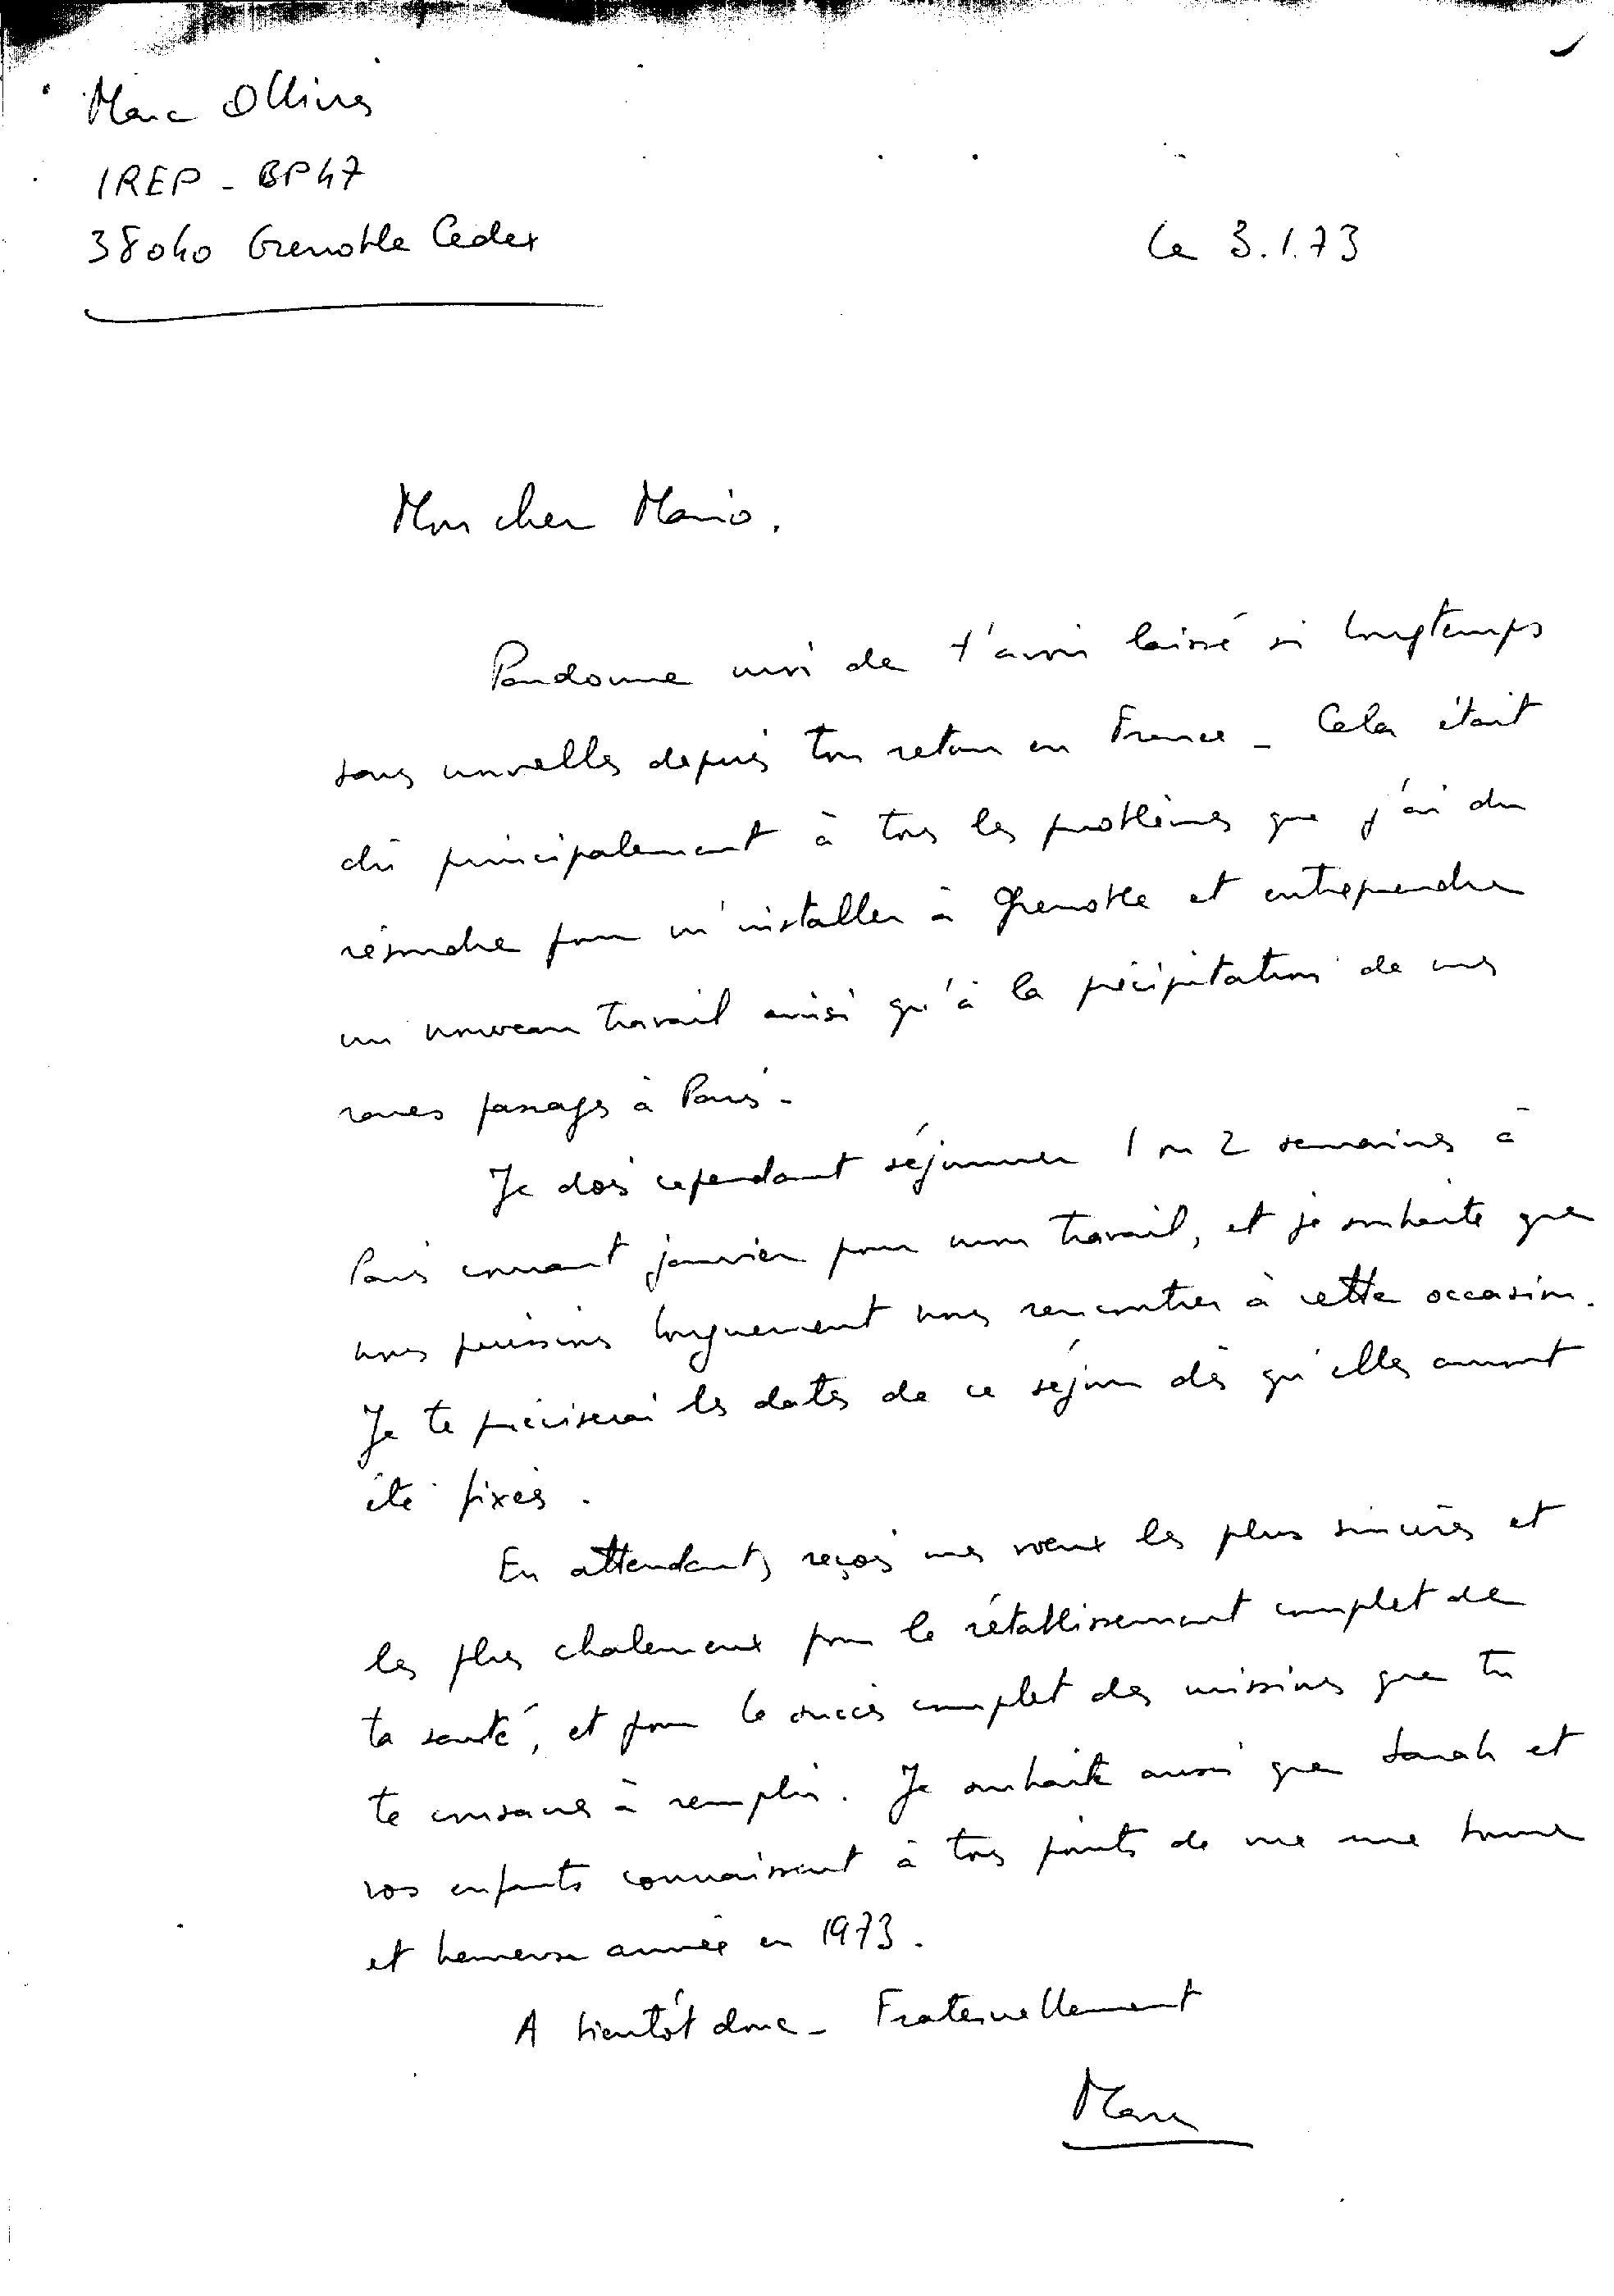 Marc Ollivier
IREP - BP47
38040 Grenoble Cedex
Le 3.1.73
Mon cher Mario.
Pardonne moi de t'avoir laissé si longtemps
sans nouvelles depuis ton retour en France - Cela était
dû principalement à tous les problèmes que j'ai du
résoudre pour m'installer à Grenoble et entreprendre
un nouveau travail ainsi qu'à la précipitation de mes
rares passages à Paris -
Je dois cependant séjourner 1 ou 2 semaines à
Paris courant janvier pour mon travail, et je souhaite que
nous puissions longuement nous rencontrer à cette occasion.
Je te préciserai les dates de ce séjour dès qu'elles auront
été fixées.
En attendant, reçois mes vœux les plus sincères et
les plus chaleureux pour le rétablissement complet de
ta santé, et pour le succès complet des missions que tu
te consacres à remplir. Je souhaite aussi que Sarah et
vos enfants connaissent à tous points de vue une bonne
et heureuse année en 1973.
A bientôt donc - Fraternellement
Marc